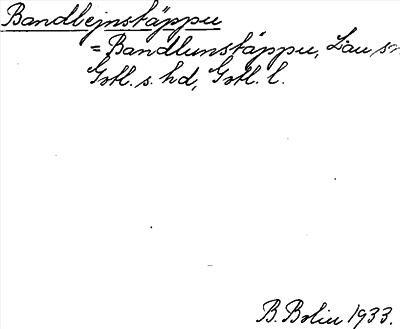 Bandbejnstäppu
= Bandlunstäppu, Lau sn
Gotl. s. hd, Gotl. l.
B. Bolin 1933.